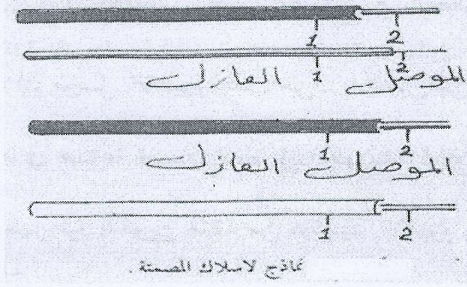 1 2
1 2
العازل الموصل
1 2
الموصل العازل
1 2
نماذج لاسلاك المصمتة .